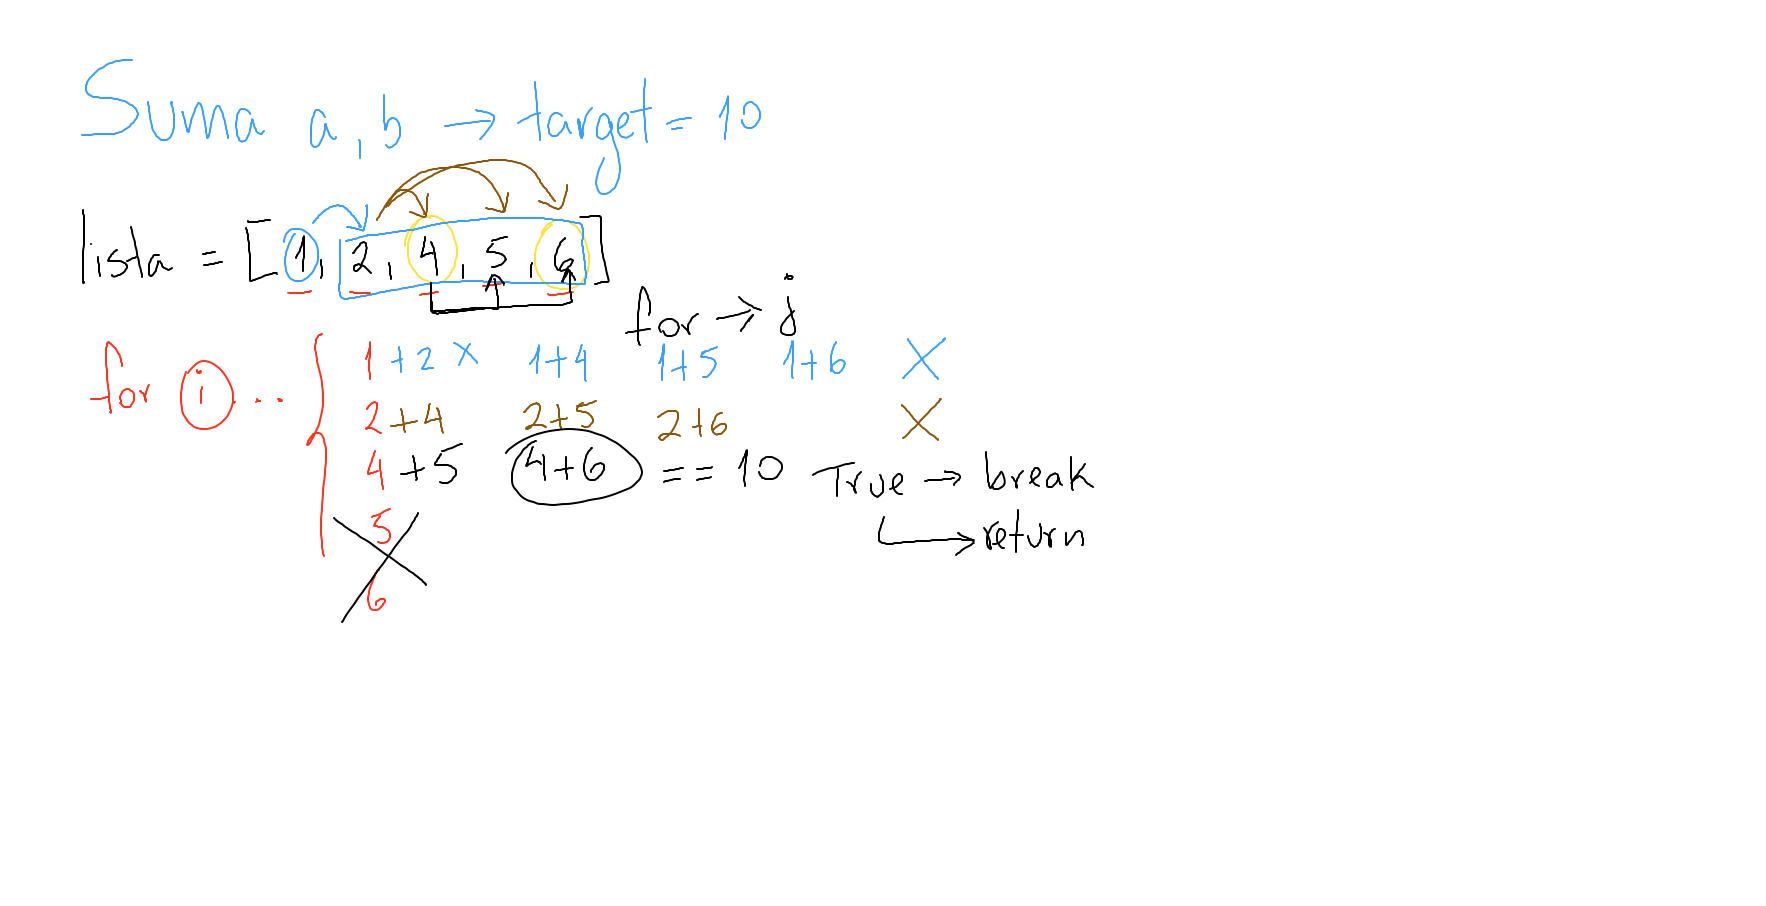 Suma a, b → target = 10
lista = [1, 2, 4, 5, 6]
for → j
for i ..
1 + 2 x 1+4 1+5 1+6 X
2+4 2+5 2+6 X
4+5 4+6 == 10 True → break
5 → return
6